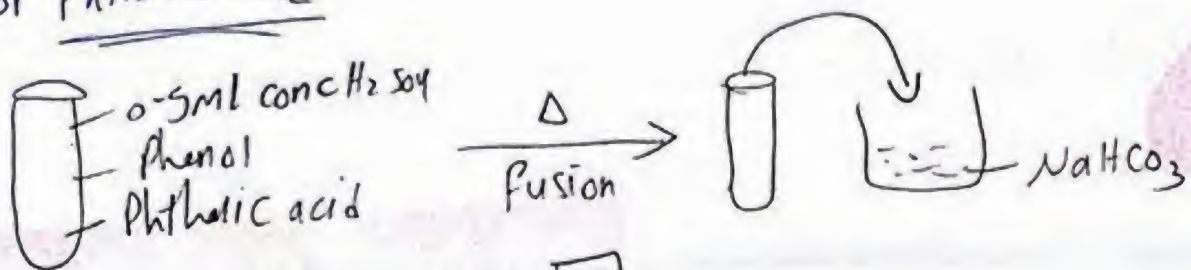 0-5ml conc H2 SO4
Phenol
Phthalic acid
Δ
fusion
NaHCO3